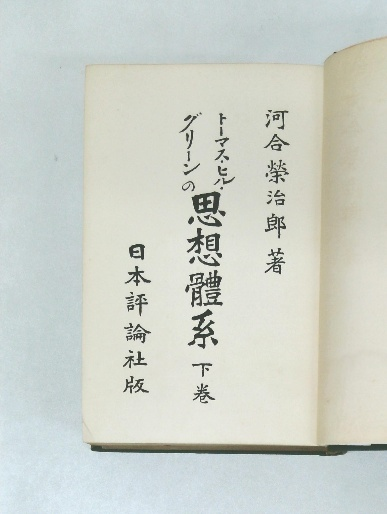 河合榮治郎著
トーマス・ヒル・
グリーンの
思想體系 下卷
日本評論社版